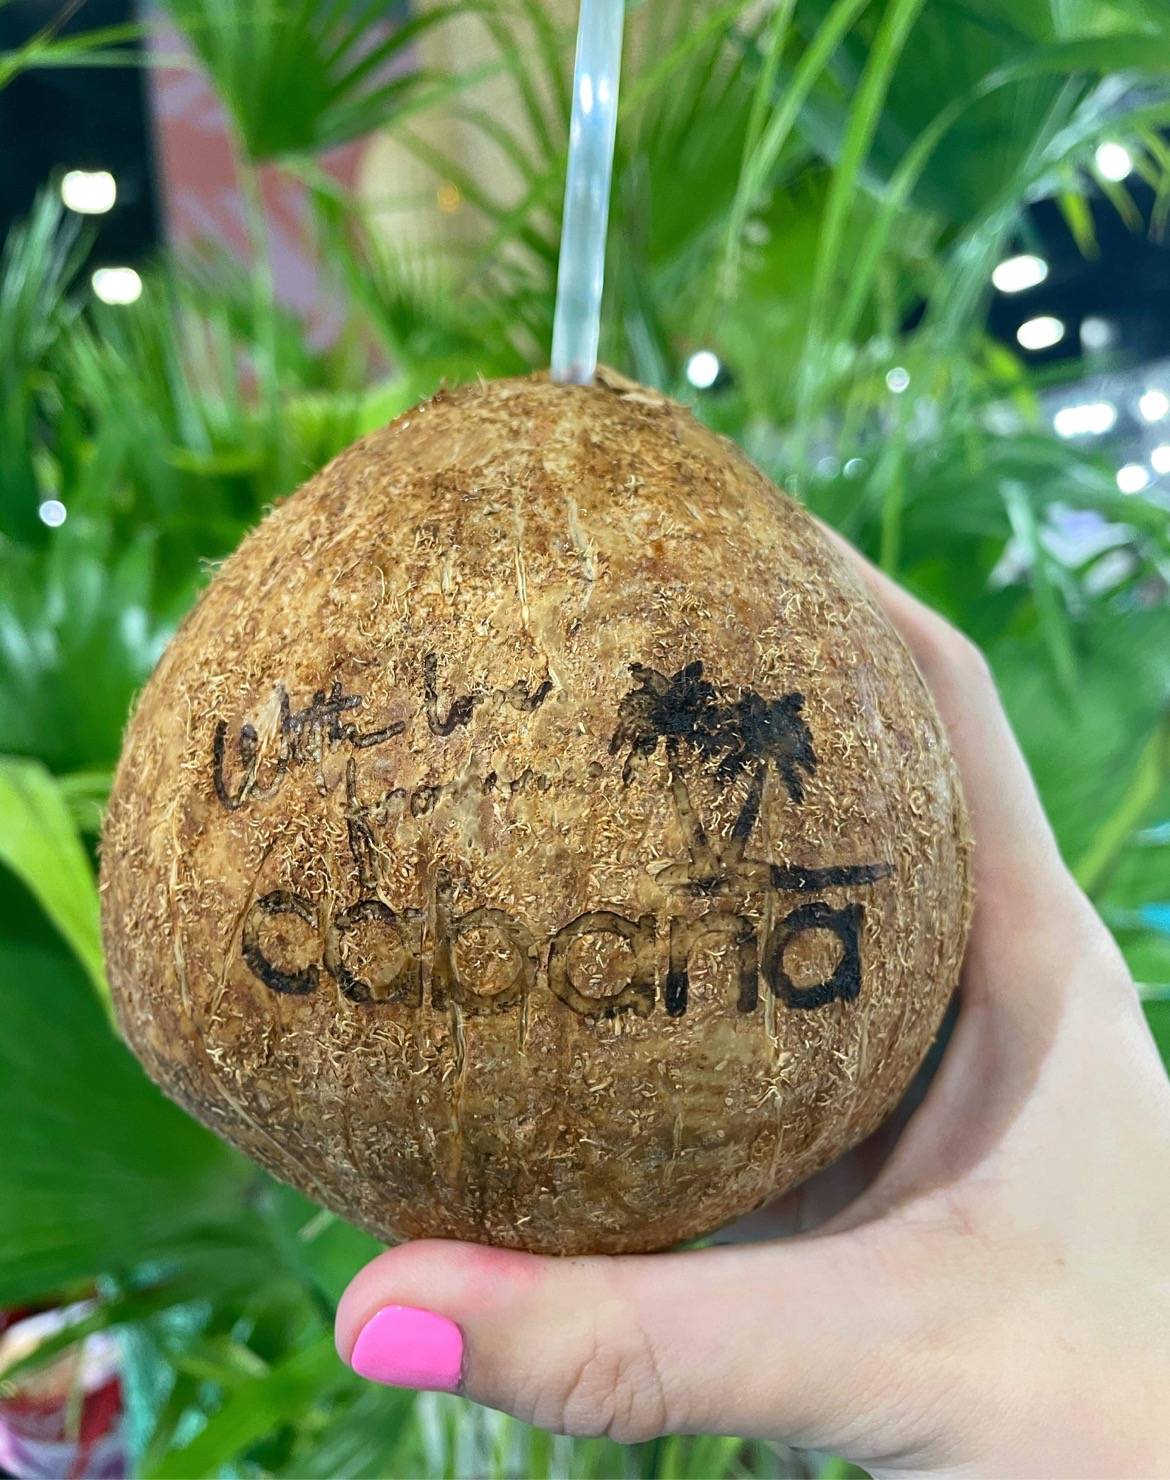 With love
from
cabana